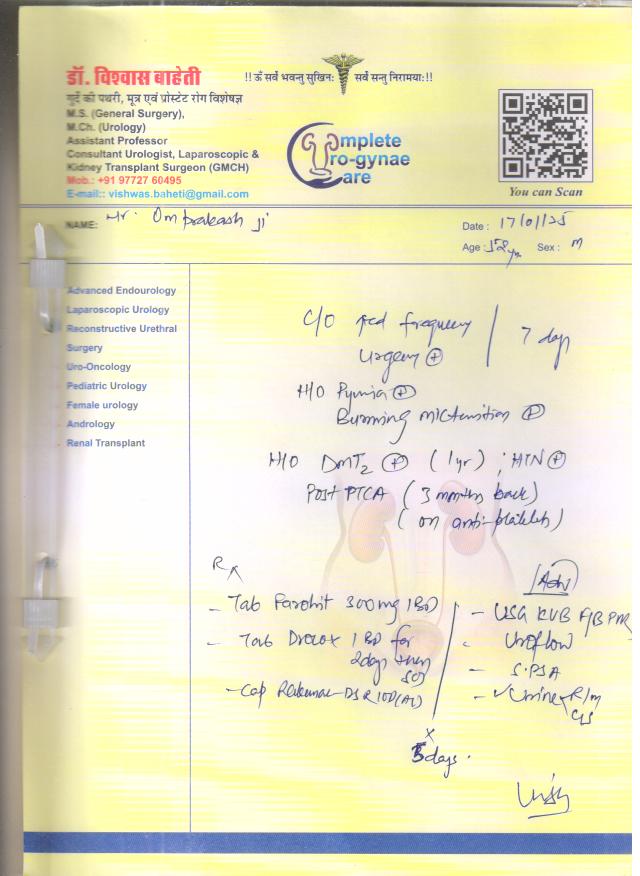 डॉ. विश्वास बाहेती
गुर्दे की पथरी, मूत्र एवं प्रोस्टेट रोग विशेषज्ञ
M.S. (General Surgery),
M.Ch. (Urology)
Assistant Professor
Consultant Urologist, Laparoscopic &
Kidney Transplant Surgeon (GMCH)
Mob.: +91 97727 60495
E-mail:: vishwas.baheti@gmail.com
!! ॐ सर्वे भवन्तु सुखिनः सर्वे सन्तु निरामयाः !!
Complete
Uro-gynae
Care
You can Scan
NAME: Mr. Om prakash Ji
Date : 17/01/25
Age : 52 yr Sex : M
Advanced Endourology
Laparoscopic Urology
Reconstructive Urethral
Surgery
Uro-Oncology
Pediatric Urology
Female urology
Andrology
Renal Transplant
C/O frequency
Urgency ⊕
7 days
H/O Pyuria ⊕
Burning micturition ⊕
H/O DMT2 ⊕ (1yr) ; HTN ⊕
Post PTCA (3 months back)
(on anti-platelets)
Rx
- Tab 300mg 1 BD
- Tab 1 BD for
2days then
SOS
- Cap DSR 1 OD (AC)
x
5 days.
Adv
- USG KUB
- Uroflow
- S. PSA
- Urine R/m
C/S